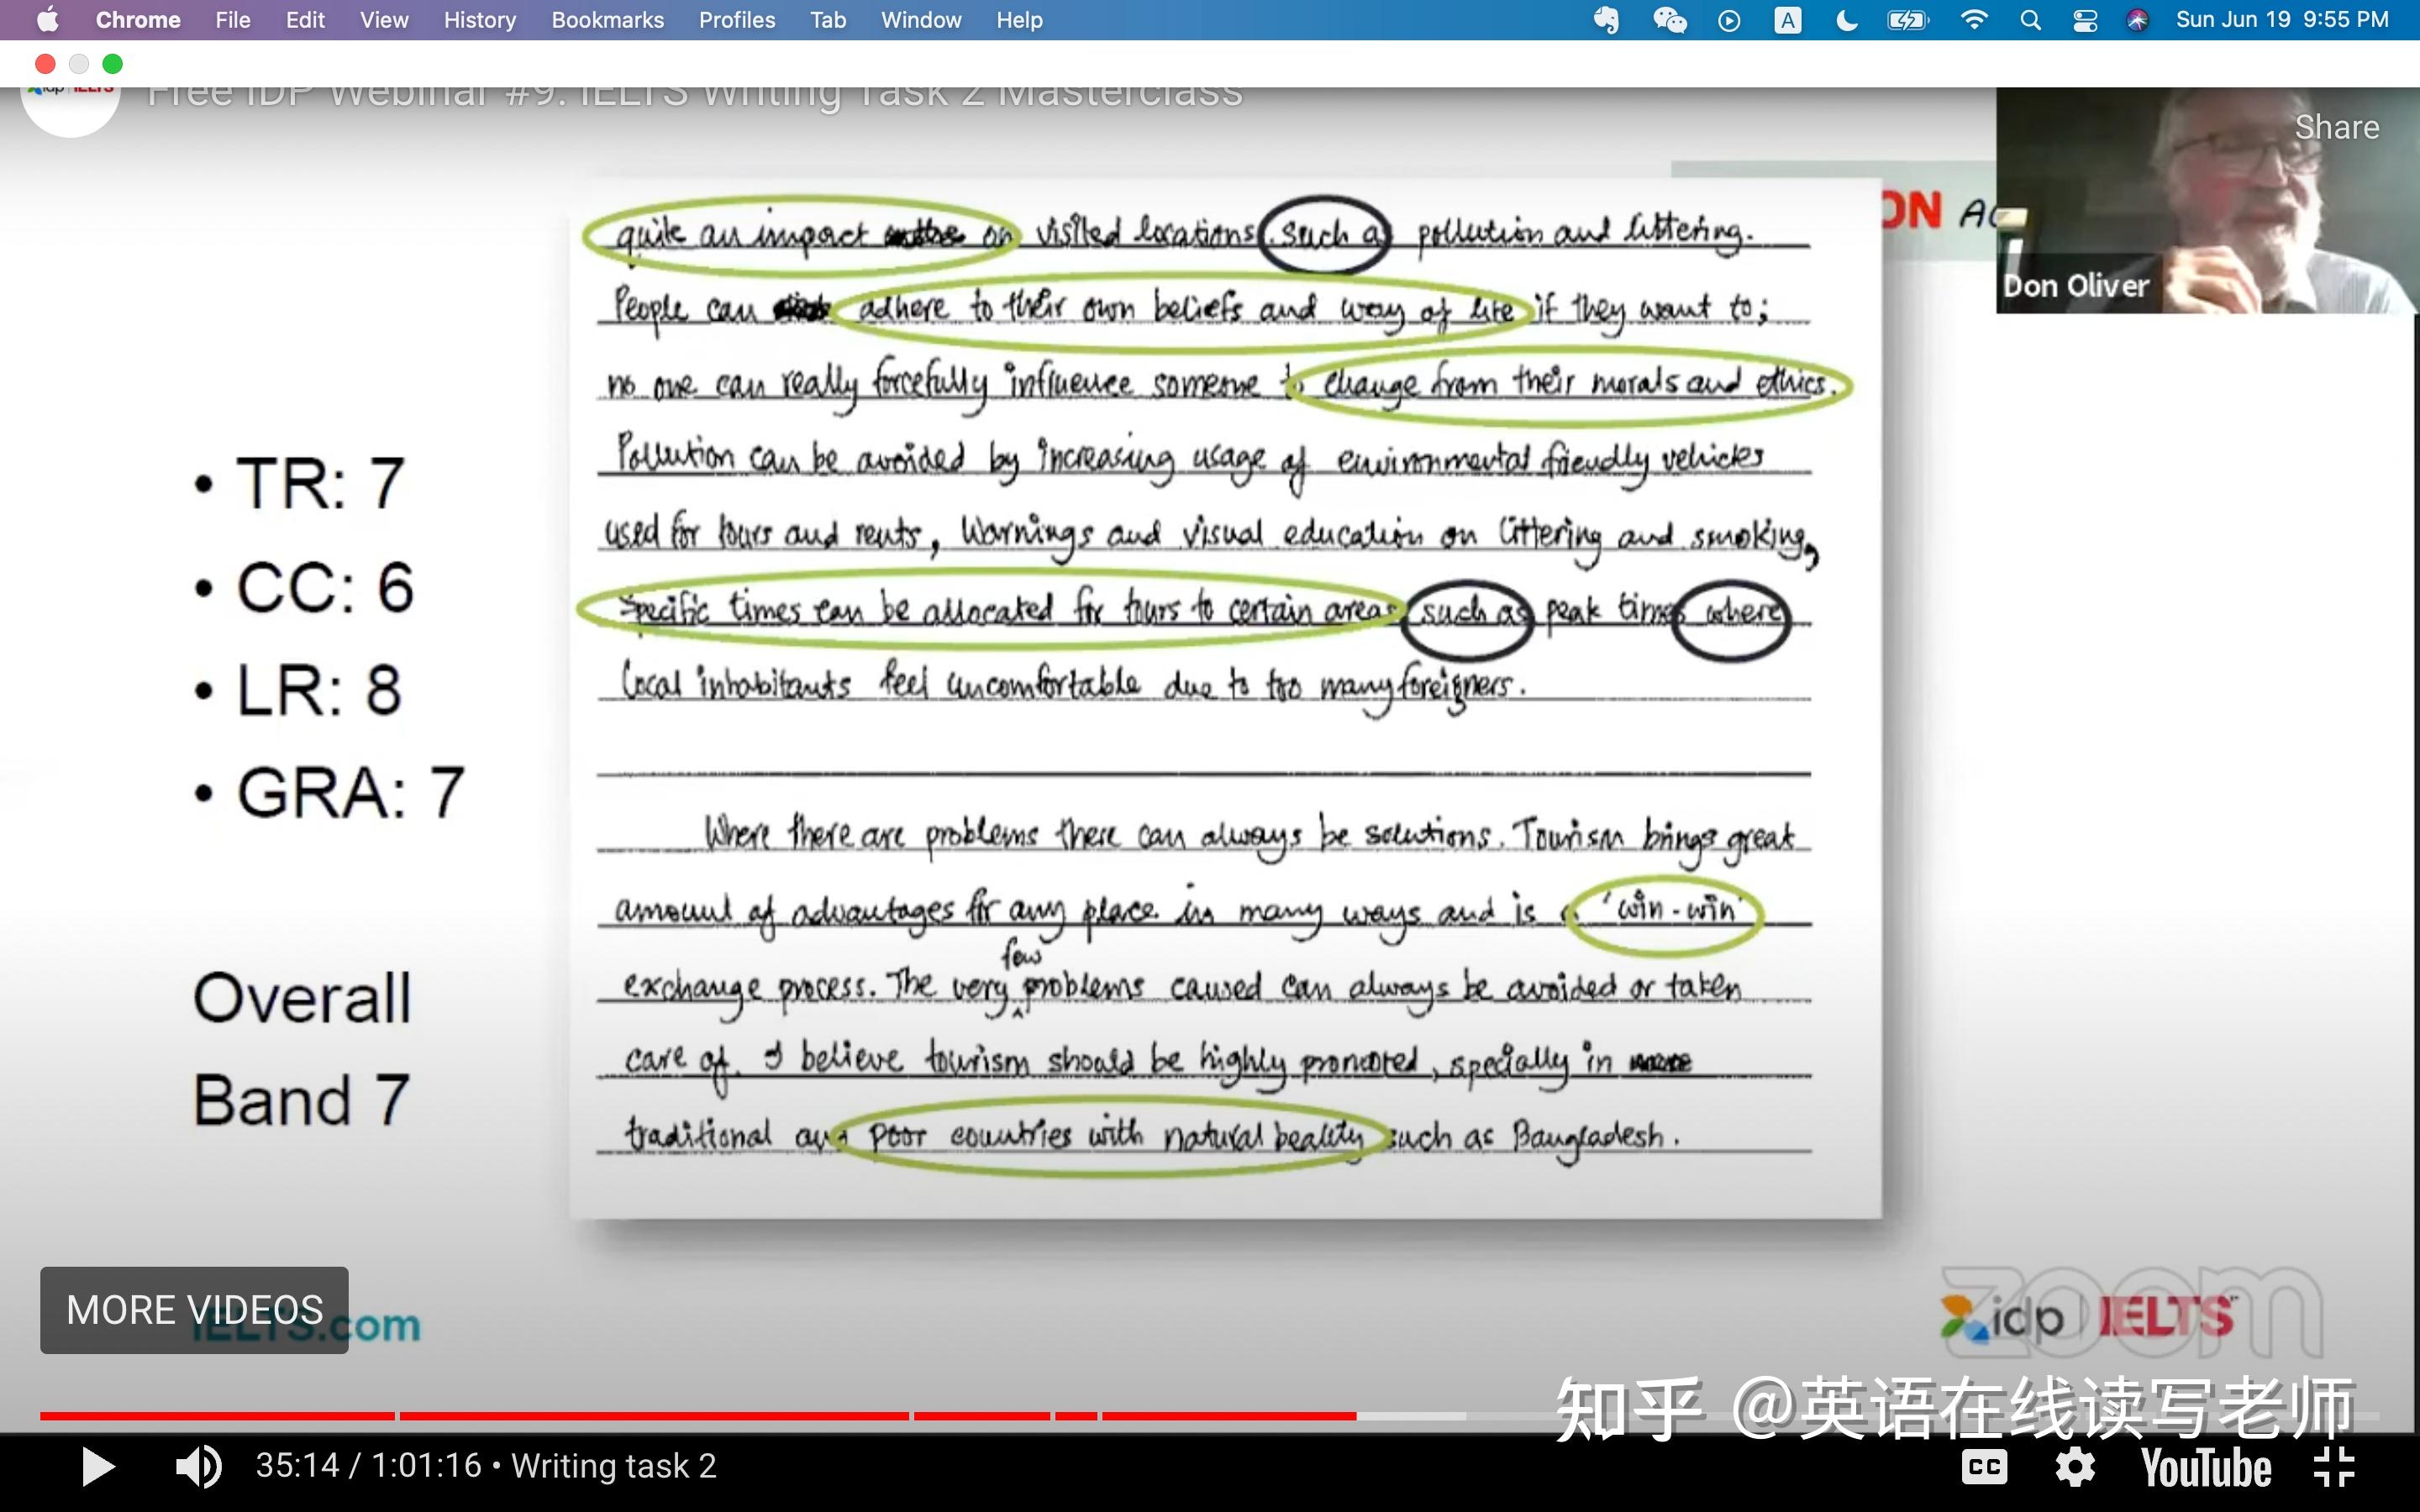 Chrome File Edit View History Bookmarks Profiles Tab Window Help A Sun Jun 19 9:55 PM
Free IDP Webinar #9: IELTS Writing Task 2 Masterclass
Share
ON
Don Oliver
quite an impact on visited locations such as pollution and littering.
People can adhere to their own beliefs and way of life if they want to;
no one can really forcefully influence someone to change from their morals and ethics.
Pollution can be avoided by increasing usage of environmental friendly vehicles
used for tours and rents, Warnings and visual education on littering and smoking,
Specific times can be allocated for tours to certain areas such as peak times where
Local inhabitants feel uncomfortable due to too many foreigners.
Where there are problems there can always be solutions. Tourism brings great
amount of advantages for any place in many ways and is a 'win-win'
few
exchange process. The very problems caused can always be avoided or taken
care of. I believe tourism should be highly promoted, specially in
traditional and poor countries with natural beality such as Bangladesh.
• TR: 7
• CC: 6
• LR: 8
• GRA: 7
Overall
Band 7
MORE VIDEOS
IELTS.com
idp IELTS
zoom
知乎 @英语在线读写老师
35:14 / 1:01:16 • Writing task 2
CC YouTube